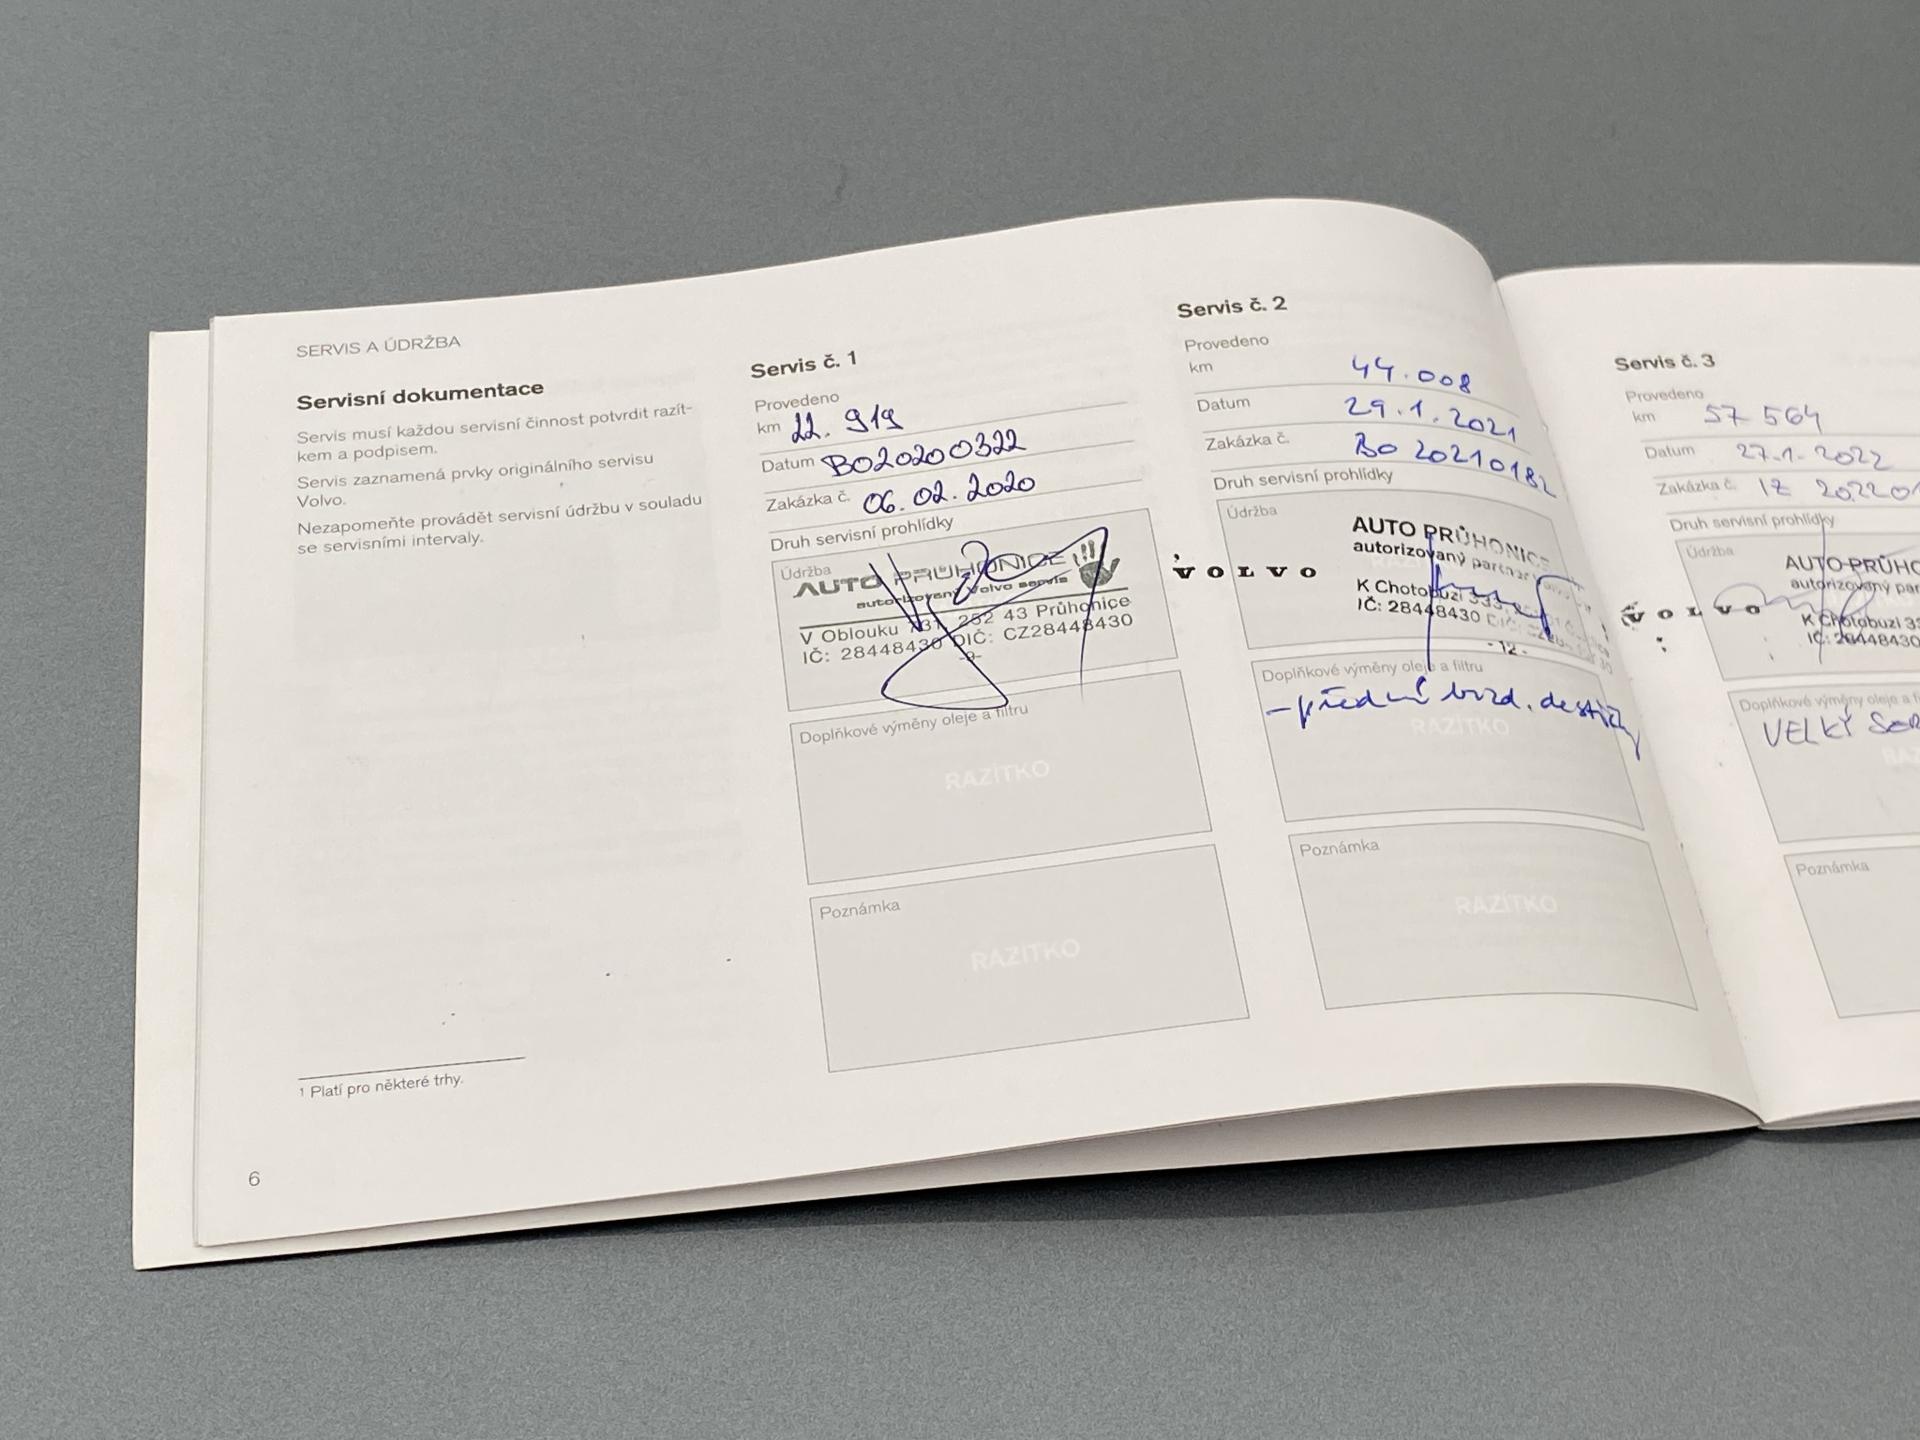 SERVIS A ÚDRŽBA
Servisní dokumentace
Servis musí každou servisní činnost potvrdit razít-
kem a podpisem.
Servis zaznamená prvky originálního servisu
Volvo.
Nezapomeňte provádět servisní údržbu v souladu
se servisními intervaly.
1 Platí pro některé trhy.
6
Servis č. 1
Provedeno
km 22.919
Datum BO20200322
Zakázka č. 06.02.2020
Druh servisní prohlídky
Údržba
AUTO PRŮHONICE
autorizovaný Volvo servis
V Oblouku 731, 252 43 Průhonice
IČ: 28448430 DIČ: CZ28448430
-9-
Doplňkové výměny oleje a filtru
RAZÍTKO
Poznámka
RAZÍTKO
Servis č. 2
Provedeno
km 44.008
Datum 29.1.2021
Zakázka č. BO 20210182
Druh servisní prohlídky
Údržba
VOLVO
AUTO PRŮHONICE
autorizovaný partner
K Chotobuzi 333,
IČ: 28448430
- 12 -
Doplňkové výměny oleje a filtru
- přední brzd. destičky
RAZÍTKO
Poznámka
RAZÍTKO
Servis č. 3
Provedeno
km 57 564
Datum 27.1.2022
Zakázka č. IZ 202201
Druh servisní prohlídky
Údržba
VOLVO
AUTO PRŮHO
autorizovaný par
K Chotobuzi 33
IČ: 28448430
Doplňkové výměny oleje a fi
VELKÝ SER
RAZ
Poznámka